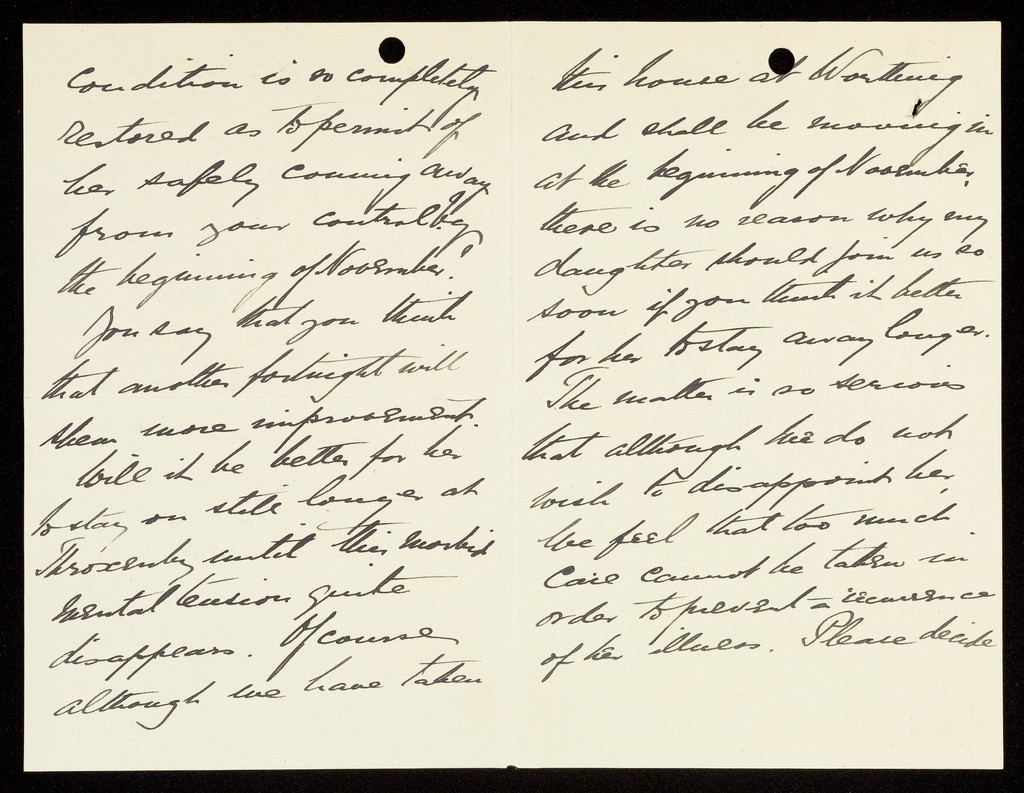 condition is so completely
restored as to permit of
her safely coming away
from your control by
the beginning of November?
You say that you think
that another fortnight will
shew more improvement.
Will it be better for her
to stay on still longer at
Throxenby until this morbid
mental tension quite
disappears. Of course
although we have taken
this house at Worthing
and shall be moving in
at the beginning of November,
there is no reason why my
daughter should join us so
soon if you think it better
for her to stay away longer.
The matter is so serious
that although we do not
wish to disappoint her,
we feel that too much
care cannot be taken in
order to prevent a recurrence
of her illness. Please decide